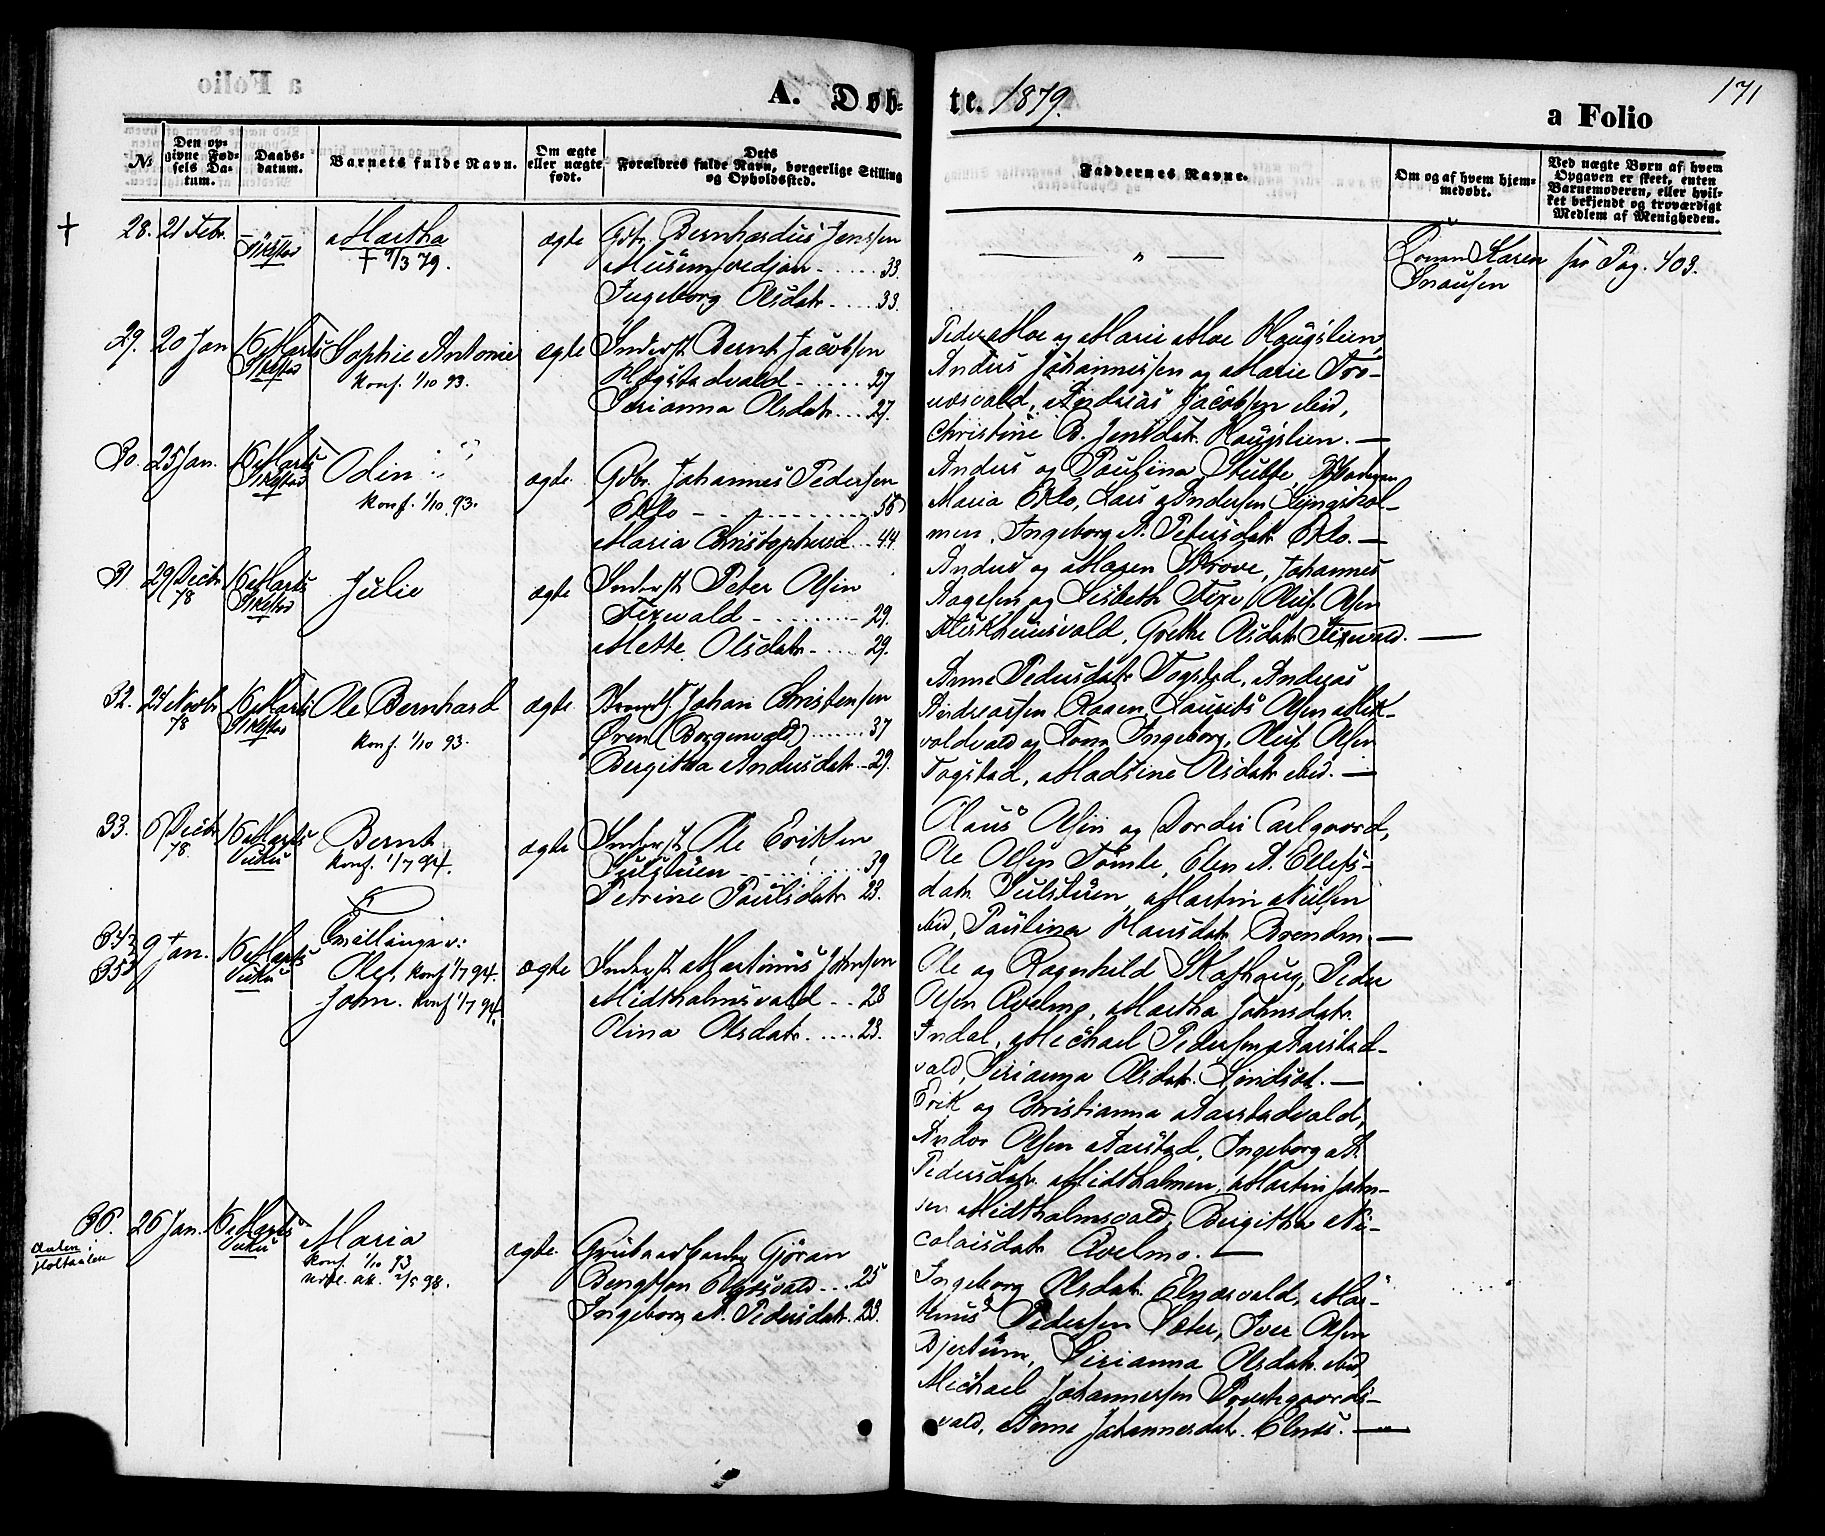 171
A. Døb-
te. 1879.
a Folio
№
Den op-
givne Fød-
sels Da-
tum.
Daabs-
datum.
Barnets fulde Navn.
Om ægte
eller uægte
født.
Dets
Forældres fulde Navn, borgerlige Stilling
og Opholdssted.
Faddernes Navne.
Om og af hvem hjem-
medøbt.
Ved uægte Børn af hvem
Opgaven er skeet, enten
Barnemoderen, eller hvil-
ket bekjendt og troværdigt
Medlem af Menigheden.
† 28. 21 Febr.
Martha
† 9/3 79.
ægte
Gdbr. Bernhardus Jenssen
33.
Ingeborg Olsdatr. 33.
— " —
Karen
Snausen
See Pag. 403.
29. 20 Jan 16 Marts
Sophie Antonie
konf. 1/10 93.
ægte
Inderst Bernt Jacobsen
Hegstadvald 27
Serianna Olsdatr. 27.
Peder Moe og Marie Moe Haugslien,
Anders Johannessen og Marie
Andreas Jacobsen ibid,
Christine B. Jensdatr. Haugslien. —
30. 25 Jan. 16 Marts
Odin
konf. 1/10 93.
ægte.
Gdbr. Johannes Pedersen
Eklo 56
Maria Christophersd. 44.
Anders og Paulina Stubbe,
Maria Eklo, Lars Andersen Lyngshol-
men, Ingeborg A. Petersdatr. Eklo. —
31 29 Decbr 78 16 Marts
Julie
ægte
Inderst Peter Olsen
29.
Mette Olsdatr. 29.
Anders og Maren Skrove, Johannes
Aagesen og Lisbeth Oluf Olsen
Grethe Olsdatr —
32. 27 Novbr 78 16 Marts
Ole Bernhard
konf. 1/10 93.
ægte.
Johan Christensen
Øren (Borgenvald) 37
Bergitha Andersdatr. 29.
Anna Pedersdatr. Togstad, Andreas
Andreassen Laurits Olsen Mik-
voldvald og Kone Ingeborg, Oluf Olsen
Togstad, Madsine Olsdatr. ibid. —
33. 6 Decbr 78. 16 Marts
Vuku
Bernt
konf. 1/7 94.
ægte
Inderst Ole Eriksen
Sulstuen 39
Petrine Paulsdatr 23.
Claus Olsen og Dordei Carlgaard,
Ole Olsen Tømte, Elen A. Ellefs-
datr. Sulstuen, Martin Nielsen
ibid, Paulina Hansdatr. Brenden. —
34 & 35. 9 Jan. 16 Marts
Vuku
Tvillinger:
Ole, konf 1/7 94.
John. konf 1/7 94.
ægte
Inderst Martinus Johnsen
Midtholmsvald 28
Olina Olsdatr. 23.
Ole og Ragnhild Skathaug, Peder
Olsen Avelmo, Martha Johnsdatr.
Indal, Michael Pedersen Aarstad-
vald, Serianna Olsdatr. Lindset. —
Erik og Christianna Aarstadvald,
Andor Olsen Aarstad, Ingeborg M.
Pedersdatr. Midtholmen, Martin John-
sen Midtholmsvald, Bergitha Ni-
colaisdatr Avelmo. —
36. 26 Jan. 16 Marts
Vuku
Holtaalen
Maria
konf. 1/10 93
2/5 98.
ægte.
Grubearbeider Gjøran
Bengtson Elnæsvald 25
Ingeborg A. Pedersdatr. 23.
Ingeborg Olsdatr. Elnæsvald, Mar-
tinus Pedersen Sæter, Iver Olsen
Bjertum, Serianna Olsdatr. ibid,
Michael Johannessen Prestgaards-
vald, Anne Johannesdatr. Elnes. —